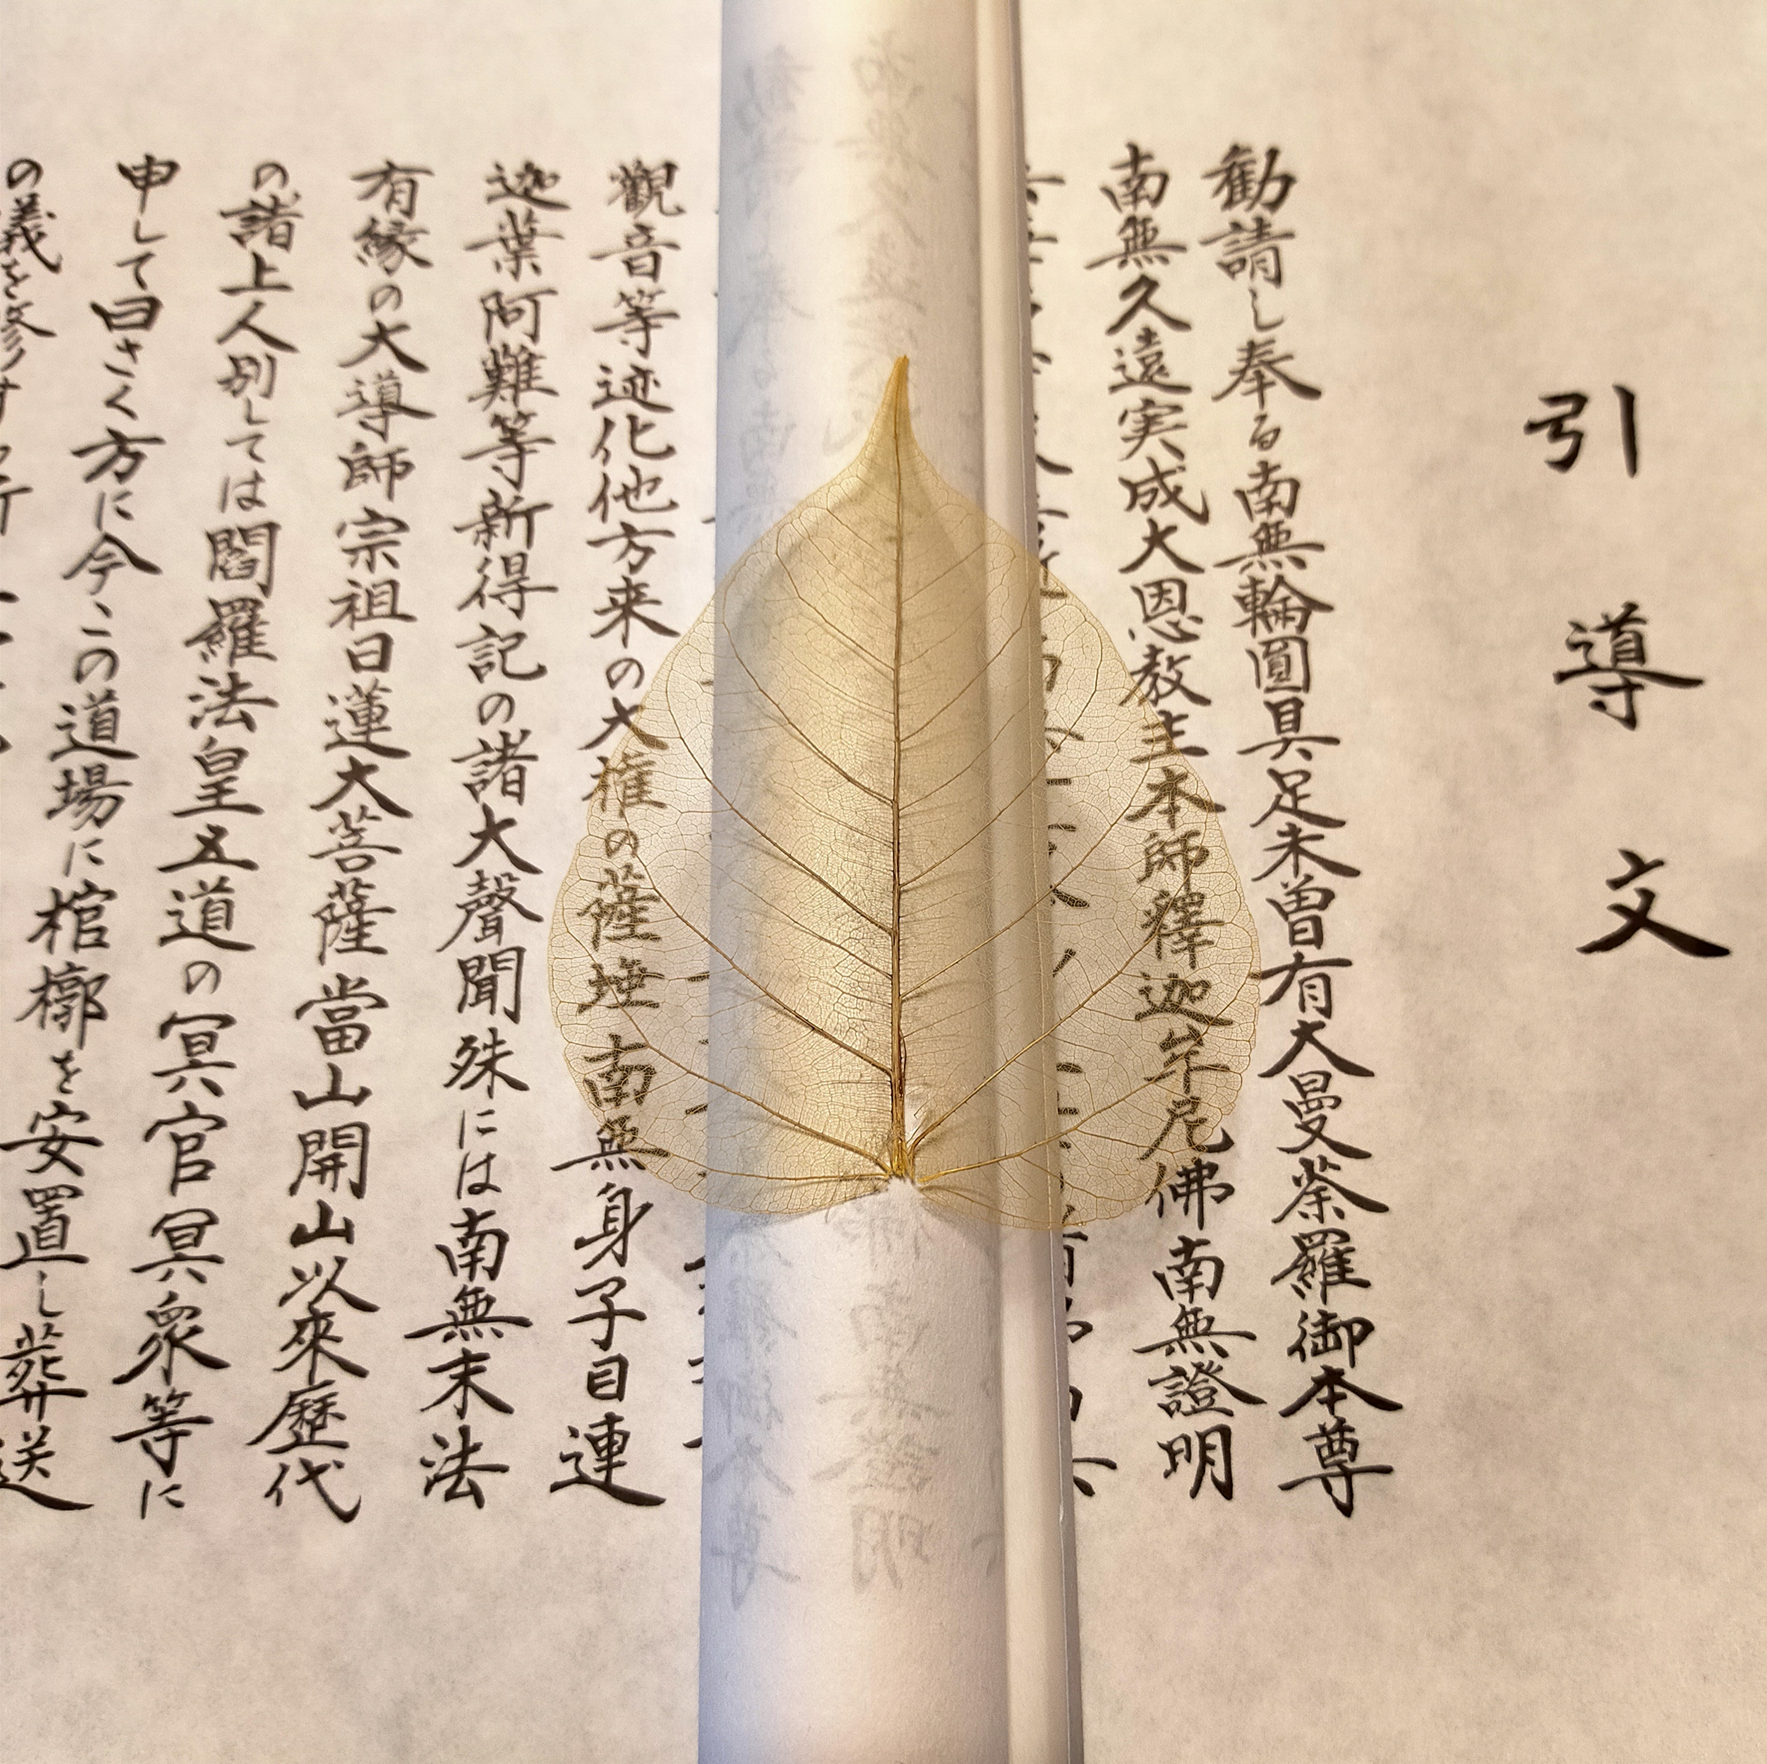 引導文
勧請し奉る南無輪圓具足未曽有大曼荼羅御本尊
南無久遠実成大恩教主本師釋迦牟尼佛南無證明
觀音等迹化他方来の大権の薩埵南無身子目連
迦葉阿難等新得記の諸大聲聞殊には南無末法
有縁の大導師宗祖日蓮大菩薩當山開山以來歴代
の諸上人別しては閻羅法皇五道の冥官冥衆等に
申して曰さく方に今この道場に棺槨を安置し葬送
の義を修す